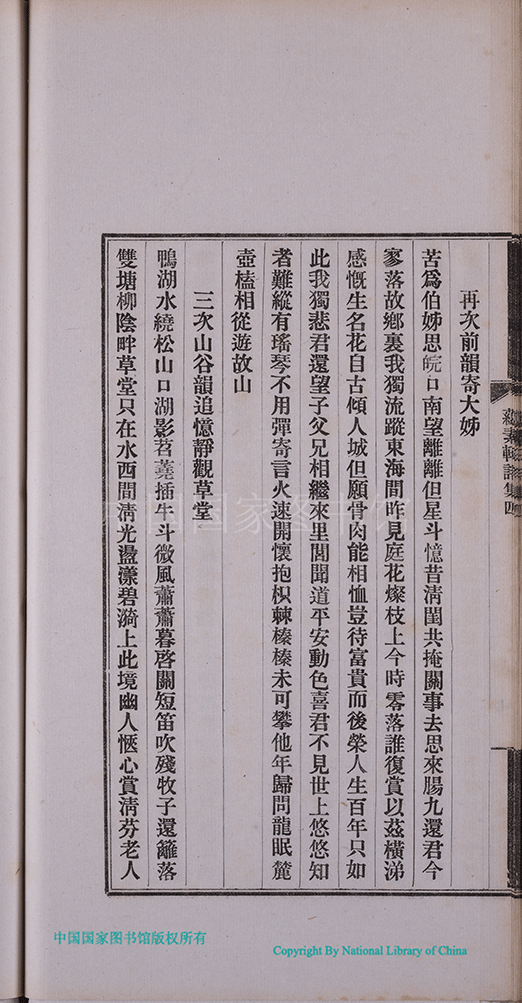 再次前韻寄大姊
苦爲伯姊思皖口南望離離但星斗憶昔清閨共掩關事去思來腸九還君今
寥落故鄉裏我獨流蹤東海間昨見庭花燦枝上今時零落誰復賞以茲橫涕
感慨生名花自古傾人城但願骨肉能相恤豈待富貴而後榮人生百年只如
此我獨悲君還望子父兄相繼來里閭聞道平安動色喜君不見世上悠悠知
者難縱有瑤琴不用彈寄言火速開懷抱枳棘榛榛未可攀他年歸問龍眠麓
壺榼相從遊故山
三次山谷韻追憶靜觀草堂
鴨湖水繞松山口湖影苕蕘插牛斗微風蕭蕭暮啓關短笛吹殘牧子還籬落
雙塘柳陰畔草堂只在水西間清光盪漾碧漪上此境幽人愜心賞清芬老人
詩集四
中国国家图书馆
中国国家图书馆版权所有
Copyright By National Library of China